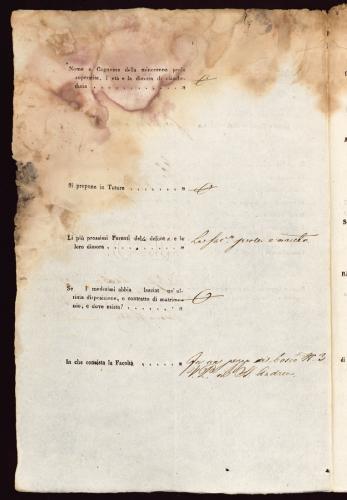 Nome e Cognome della minorenne prole
superstite, l' età e la dimora di ciasche-
duna . . . . . . . . . . . "
Si propone in Tutore . . . . . . . "
Li più prossimi Parenti del defonto e
loro dimora . . . . . . . . . "
prole e marito
Se i medesimi abbia lasciat un' ul-
tima disposizione, o contratto di matrimo-
nio, e dove esista? . . . . . . . "
In che consista la Facoltà . . . . . "
In un pezzo di bosco N. 3